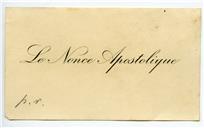 Le Nonce Apostolique
p. r.